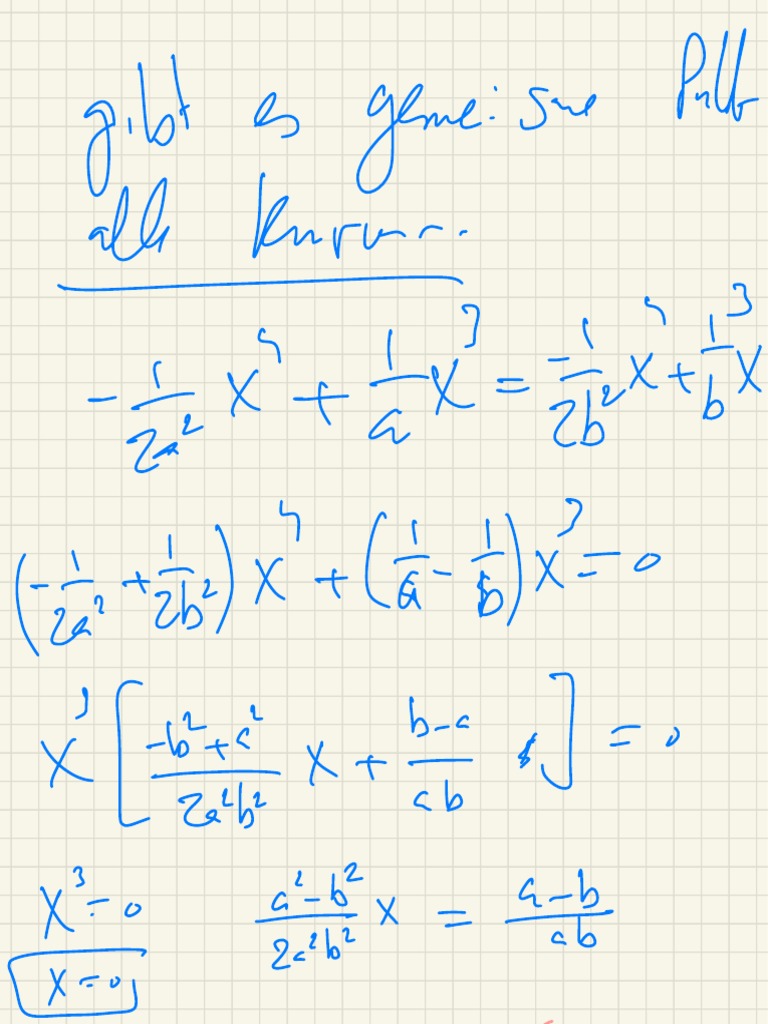 gibt es gemeinsame Punkte
alle Kurven.
-1/(2a²) x⁴ + 1/a x³ = -1/(2b²) x⁴ + 1/b x³
(-1/(2a²) + 1/(2b²)) x⁴ + (1/a - 1/b) x³ = 0
x³ [(-b² + a²)/(2a²b²) x + (b-a)/(ab)] = 0
x³ = 0 (a² - b²)/(2a²b²) x = (a-b)/(ab)
x = 0